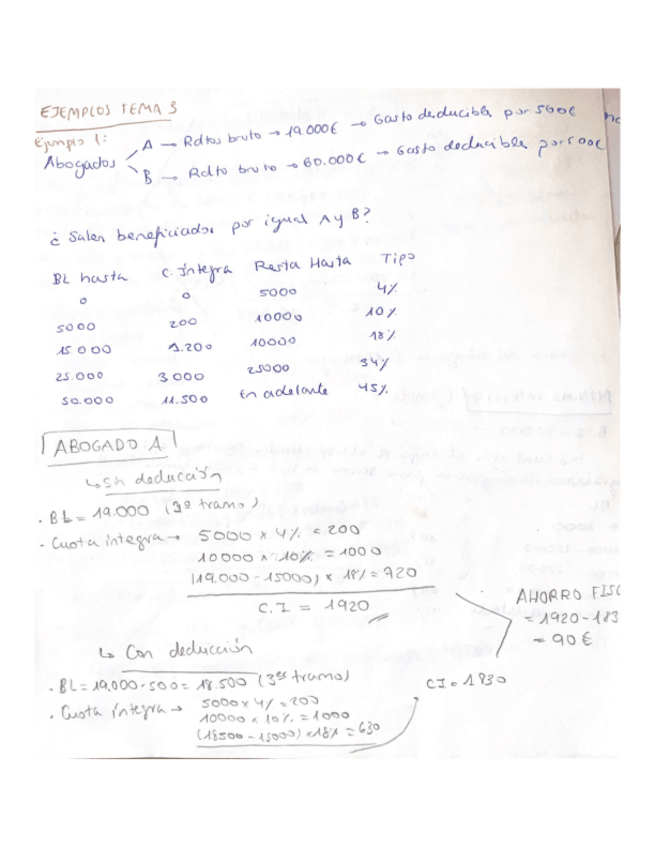 EJEMPLOS TEMA 3
Ejemplo 1:
Abogados
A → Rdtos bruto → 19.000€ → Gasto deducible por 500€
B → Rdto bruto → 60.000€ → Gasto deducible por 500€
¿ Salen beneficiados por igual A y B?
BL hasta C. Íntegra Resta Hasta Tipo
0 0 5000 4%
5000 200 10000 10%
15.000 1.200 10000 18%
25.000 3.000 25000 34%
50.000 11.500 En adelante 45%
ABOGADO A
↳ Sin deducción
· BL = 19.000 (3º tramo)
· Cuota íntegra → 5000 x 4% = 200
10000 x 10% = 1000
(19.000 - 15000) x 18% = 720
C.I = 1920
AHORRO FISC
= 1920 - 183
= 90€
↳ Con deducción
· BL = 19.000 - 500 = 18.500 (3er tramo)
CI = 1830
· Cuota íntegra → 5000 x 4% = 200
10000 x 10% = 1000
(18500 - 15000) x 18% = 630